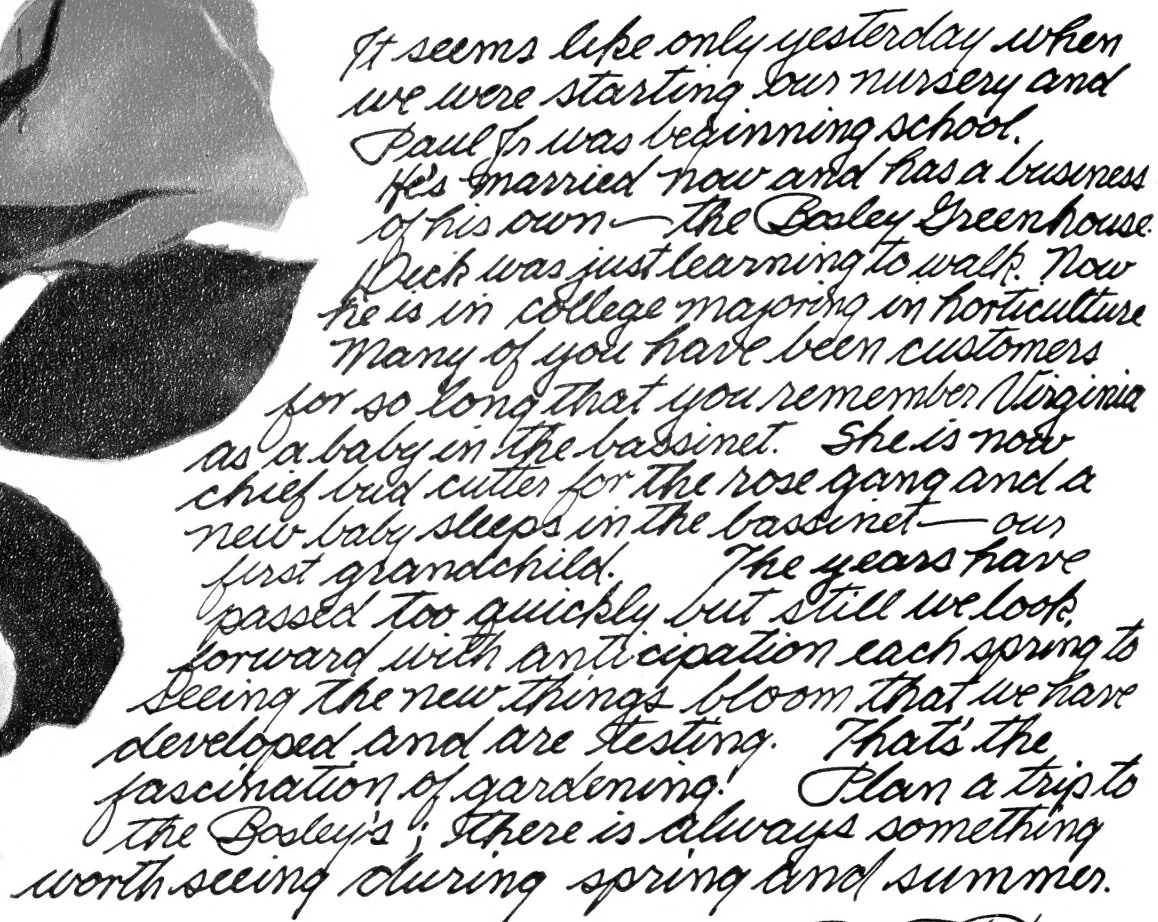 It seems like only yesterday when
we were starting our nursery and
Paul Jr was beginning school.
He's married now and has a business
of his own — the Bosley Greenhouse.
Dick was just learning to walk. Now
he is in college majoring in horticulture
Many of you have been customers
for so long that you remember Virginia
as a baby in the bassinet. She is now
chief bud cutter for the rose gang and a
new baby sleeps in the bassinet — our
first grandchild. The years have
passed too quickly but still we look,
forward with anticipation each spring to
seeing the new things bloom that we have
developed and are testing. That's the
fascination of gardening! Plan a trip to
the Bosley's; there is always something
worth seeing during spring and summer.